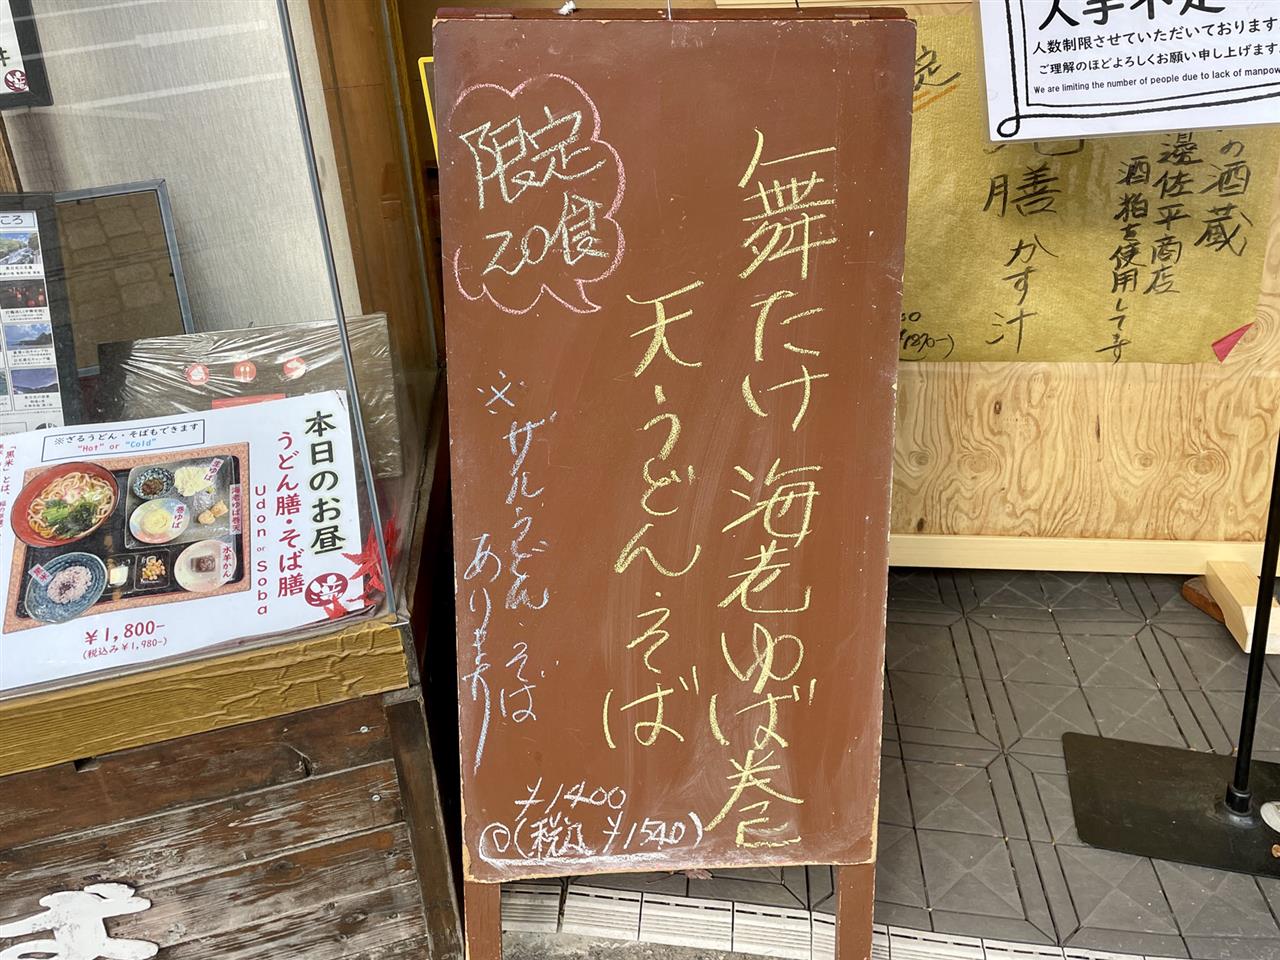 限定
20食
舞たけ 海老ゆば巻
天うどん.そば
※ザルうどん.そば
あります
¥1400
(税込¥1540)
本日のお昼
うどん膳・そば膳
Udon or Soba
※ざるうどん・そばもできます
"Hot" or "Cold"
生ゆば
海老ゆば巻天
巻ゆば
水羊かん
黒米
「黒米」とは、
¥1,800-
(税込み¥1,980-)
人手不足
人数制限させていただいております
ご理解のほどよろしくお願い申し上げます
We are limiting the number of people due to lack of manpow
の酒蔵
邉佐平商店
酒粕を使用してます
膳 かす汁
定
ころ